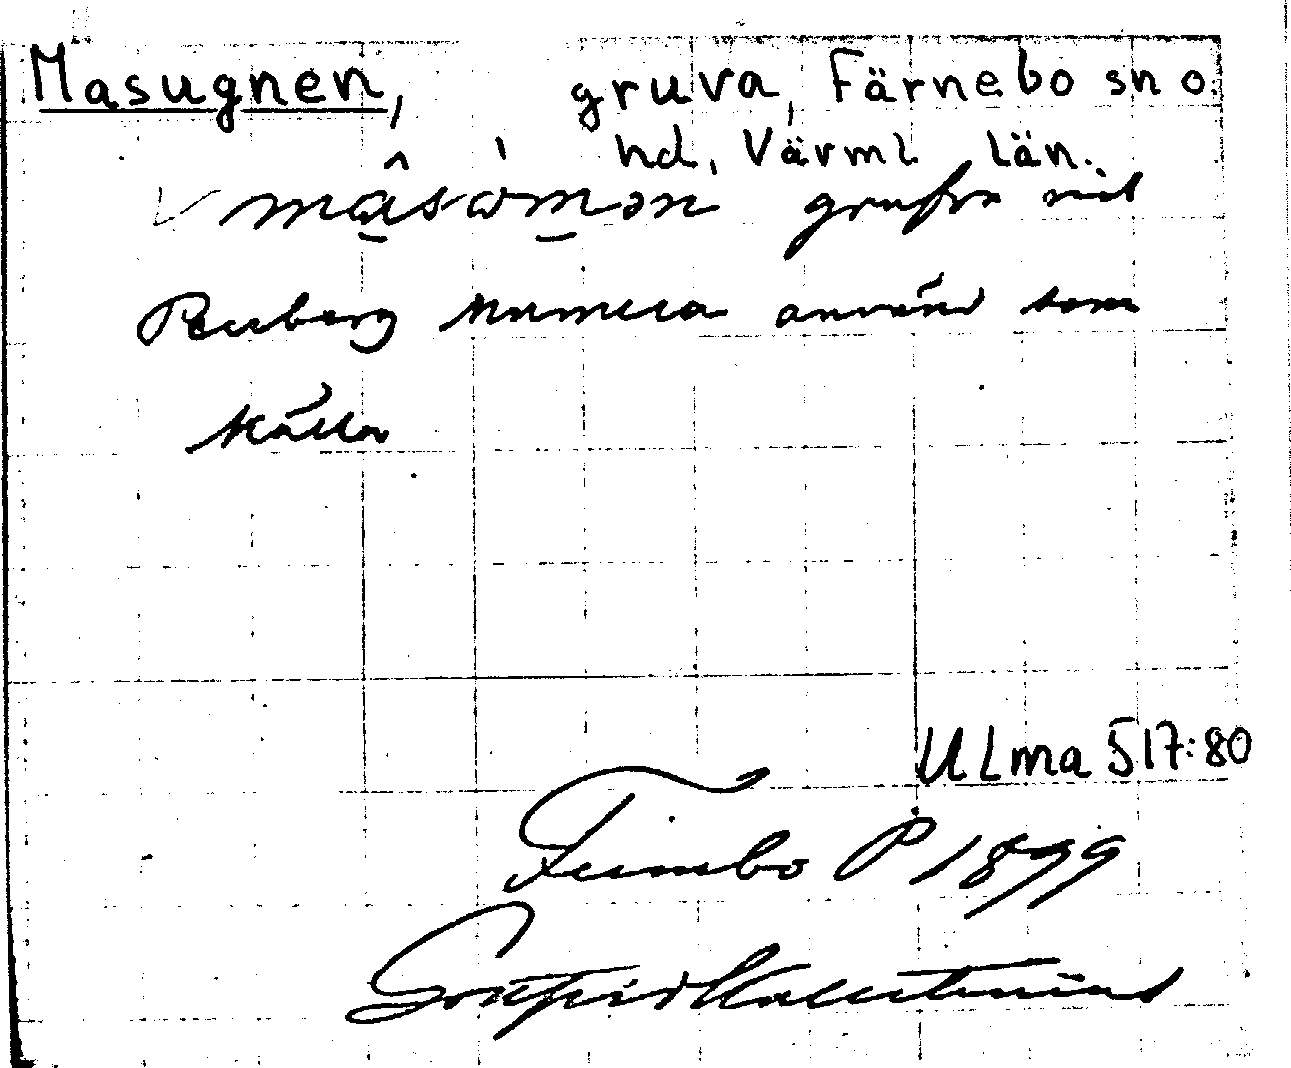 Masugnen, gruva, Färnebo sn o
hd, Värml län.
grufva vid
numera använd som
källa
ULma 517:80
Fernebo P 1899
Gottfrid Kallstenius